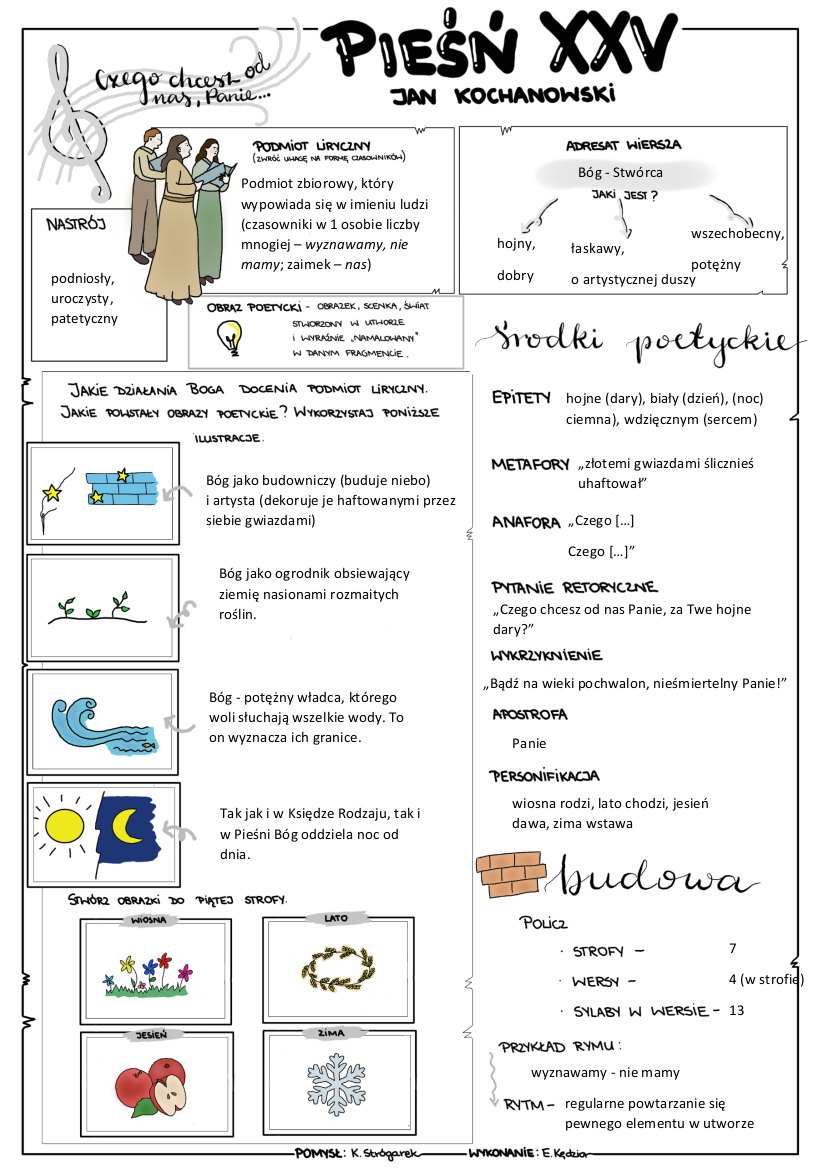 PIEŚŃ XXV
JAN KOCHANOWSKI
Czego chcesz od
nas, Panie...
PODMIOT LIRYCZNY
(ZWRÓĆ UWAGĘ NA FORMĘ CZASOWNIKÓW)
Podmiot zbiorowy, który
wypowiada się w imieniu ludzi
(czasowniki w 1 osobie liczby
mnogiej – wyznawamy, nie
mamy; zaimek – nas)
ADRESAT WIERSZA
Bóg - Stwórca
JAKI JEST?
hojny,
dobry
łaskawy,
o artystycznej duszy
wszechobecny,
potężny
NASTRÓJ
podniosły,
uroczysty,
patetyczny
OBRAZ POETYCKI - OBRAZEK, SCENKA, ŚWIAT
STWORZONY W UTWORZE
I WYRAŹNIE „NAMALOWANY"
W DANYM FRAGMENCIE.
JAKIE DZIAŁANIA BOGA DOCENIA PODMIOT LIRYCZNY.
JAKIE POWSTAŁY OBRAZY POETYCKIE? WYKORZYSTAJ PONIŻSZE
ILUSTRACJE.
Bóg jako budowniczy (buduje niebo)
i artysta (dekoruje je haftowanymi przez
siebie gwiazdami)
Bóg jako ogrodnik obsiewający
ziemię nasionami rozmaitych
roślin.
Bóg - potężny władca, którego
woli słuchają wszelkie wody. To
on wyznacza ich granice.
Tak jak i w Księdze Rodzaju, tak i
w Pieśni Bóg oddziela noc od
dnia.
STWÓRZ OBRAZKI DO PIĄTEJ STROFY.
WIOSNA
LATO
JESIEŃ
ZIMA
środki poetyckie
EPITETY hojne (dary), biały (dzień), (noc)
ciemna), wdzięcznym (sercem)
METAFORY „złotemi gwiazdami ślicznieś
uhaftował”
ANAFORA „Czego […]
Czego […]”
PYTANIE RETORYCZNE
„Czego chcesz od nas Panie, za Twe hojne
dary?”
WYKRZYKNIENIE
„Bądź na wieki pochwalon, nieśmiertelny Panie!”
APOSTROFA
Panie
PERSONIFIKACJA
wiosna rodzi, lato chodzi, jesień
dawa, zima wstawa
budowa
POLICZ
· STROFY – 7
· WERSY – 4 (w strofie)
· SYLABY W WERSIE - 13
PRZYKŁAD RYMU:
wyznawamy - nie mamy
RYTM – regularne powtarzanie się
pewnego elementu w utworze
POMYSŁ: K. Strógarek
WYKONANIE: E. Kędzior